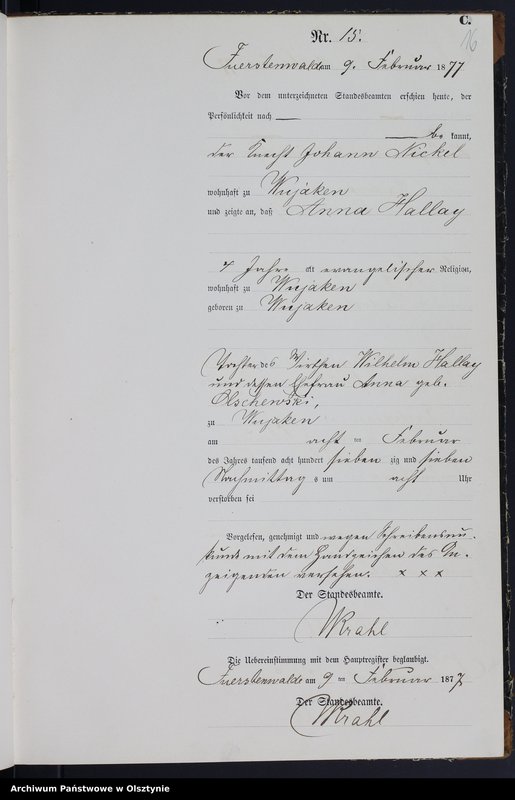 C.
16
Nr. 15.
Fuerstenwalde am 9. Februar 1877
Vor dem unterzeichneten Standesbeamten erschien heute, der
Persönlichkeit nach
be kannt,
der Knecht Johann Nickel
wohnhaft zu Wujaken
und zeigte an, daß Anna Hallay
4 Jahre alt evangelischer Religion,
wohnhaft zu Wujaken
geboren zu Wujaken
Tochter des Wirthen Wilhelm Hallay
und dessen Ehefrau Anna geb.
Olschewski,
zu Wujaken
am acht ten Februar
des Jahres tausend acht hundert sieben zig und sieben
Nachmittag s um acht Uhr
verstorben sei
Vorgelesen, genehmigt und wegen Schreibensun-
kunde mit dem Handzeichen des An-
zeigenden versehen. × × ×
Der Standesbeamte.
Krahl
Die Uebereinstimmung mit dem Hauptregister beglaubigt.
Fuerstenwalde am 9 ten Februar 1877
Der Standesbeamte.
Krahl
Archiwum Państwowe w Olsztynie